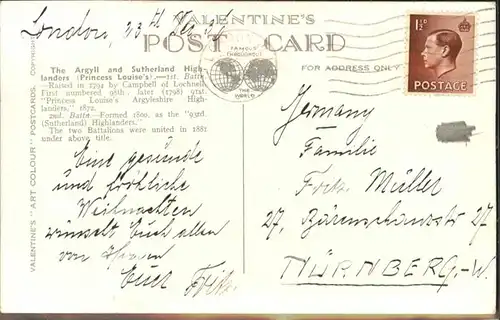 London, 23th Dez. 36
VALENTINE'S
POST CARD
FAMOUS
THROUGHOUT
THE
WORLD
FOR ADDRESS ONLY
1½D
POSTAGE
VALENTINE'S "ART COLOUR" POSTCARDS. COPYRIGHT
The Argyll and Sutherland High-
landers (Princess Louise's).—1st Battn.
Raised in 1794 by Campbell of Lochnell.
First numbered 98th, later (1798) 91st.
"Princess Louise's Argyleshire High-
landers," 1872.
2nd. Battn—Formed 1800, as the "93rd
(Sutherland) Highlanders."
The two Battalions were united in 1881
under above title.
Eine gesunde
und fröhliche
Weihnachten
wünscht Euch allen
von
Euer Fritz.
Germany
Familie
Fritz Müller
27, Bärenschanzstr 27
NÜRNBERG.-W.